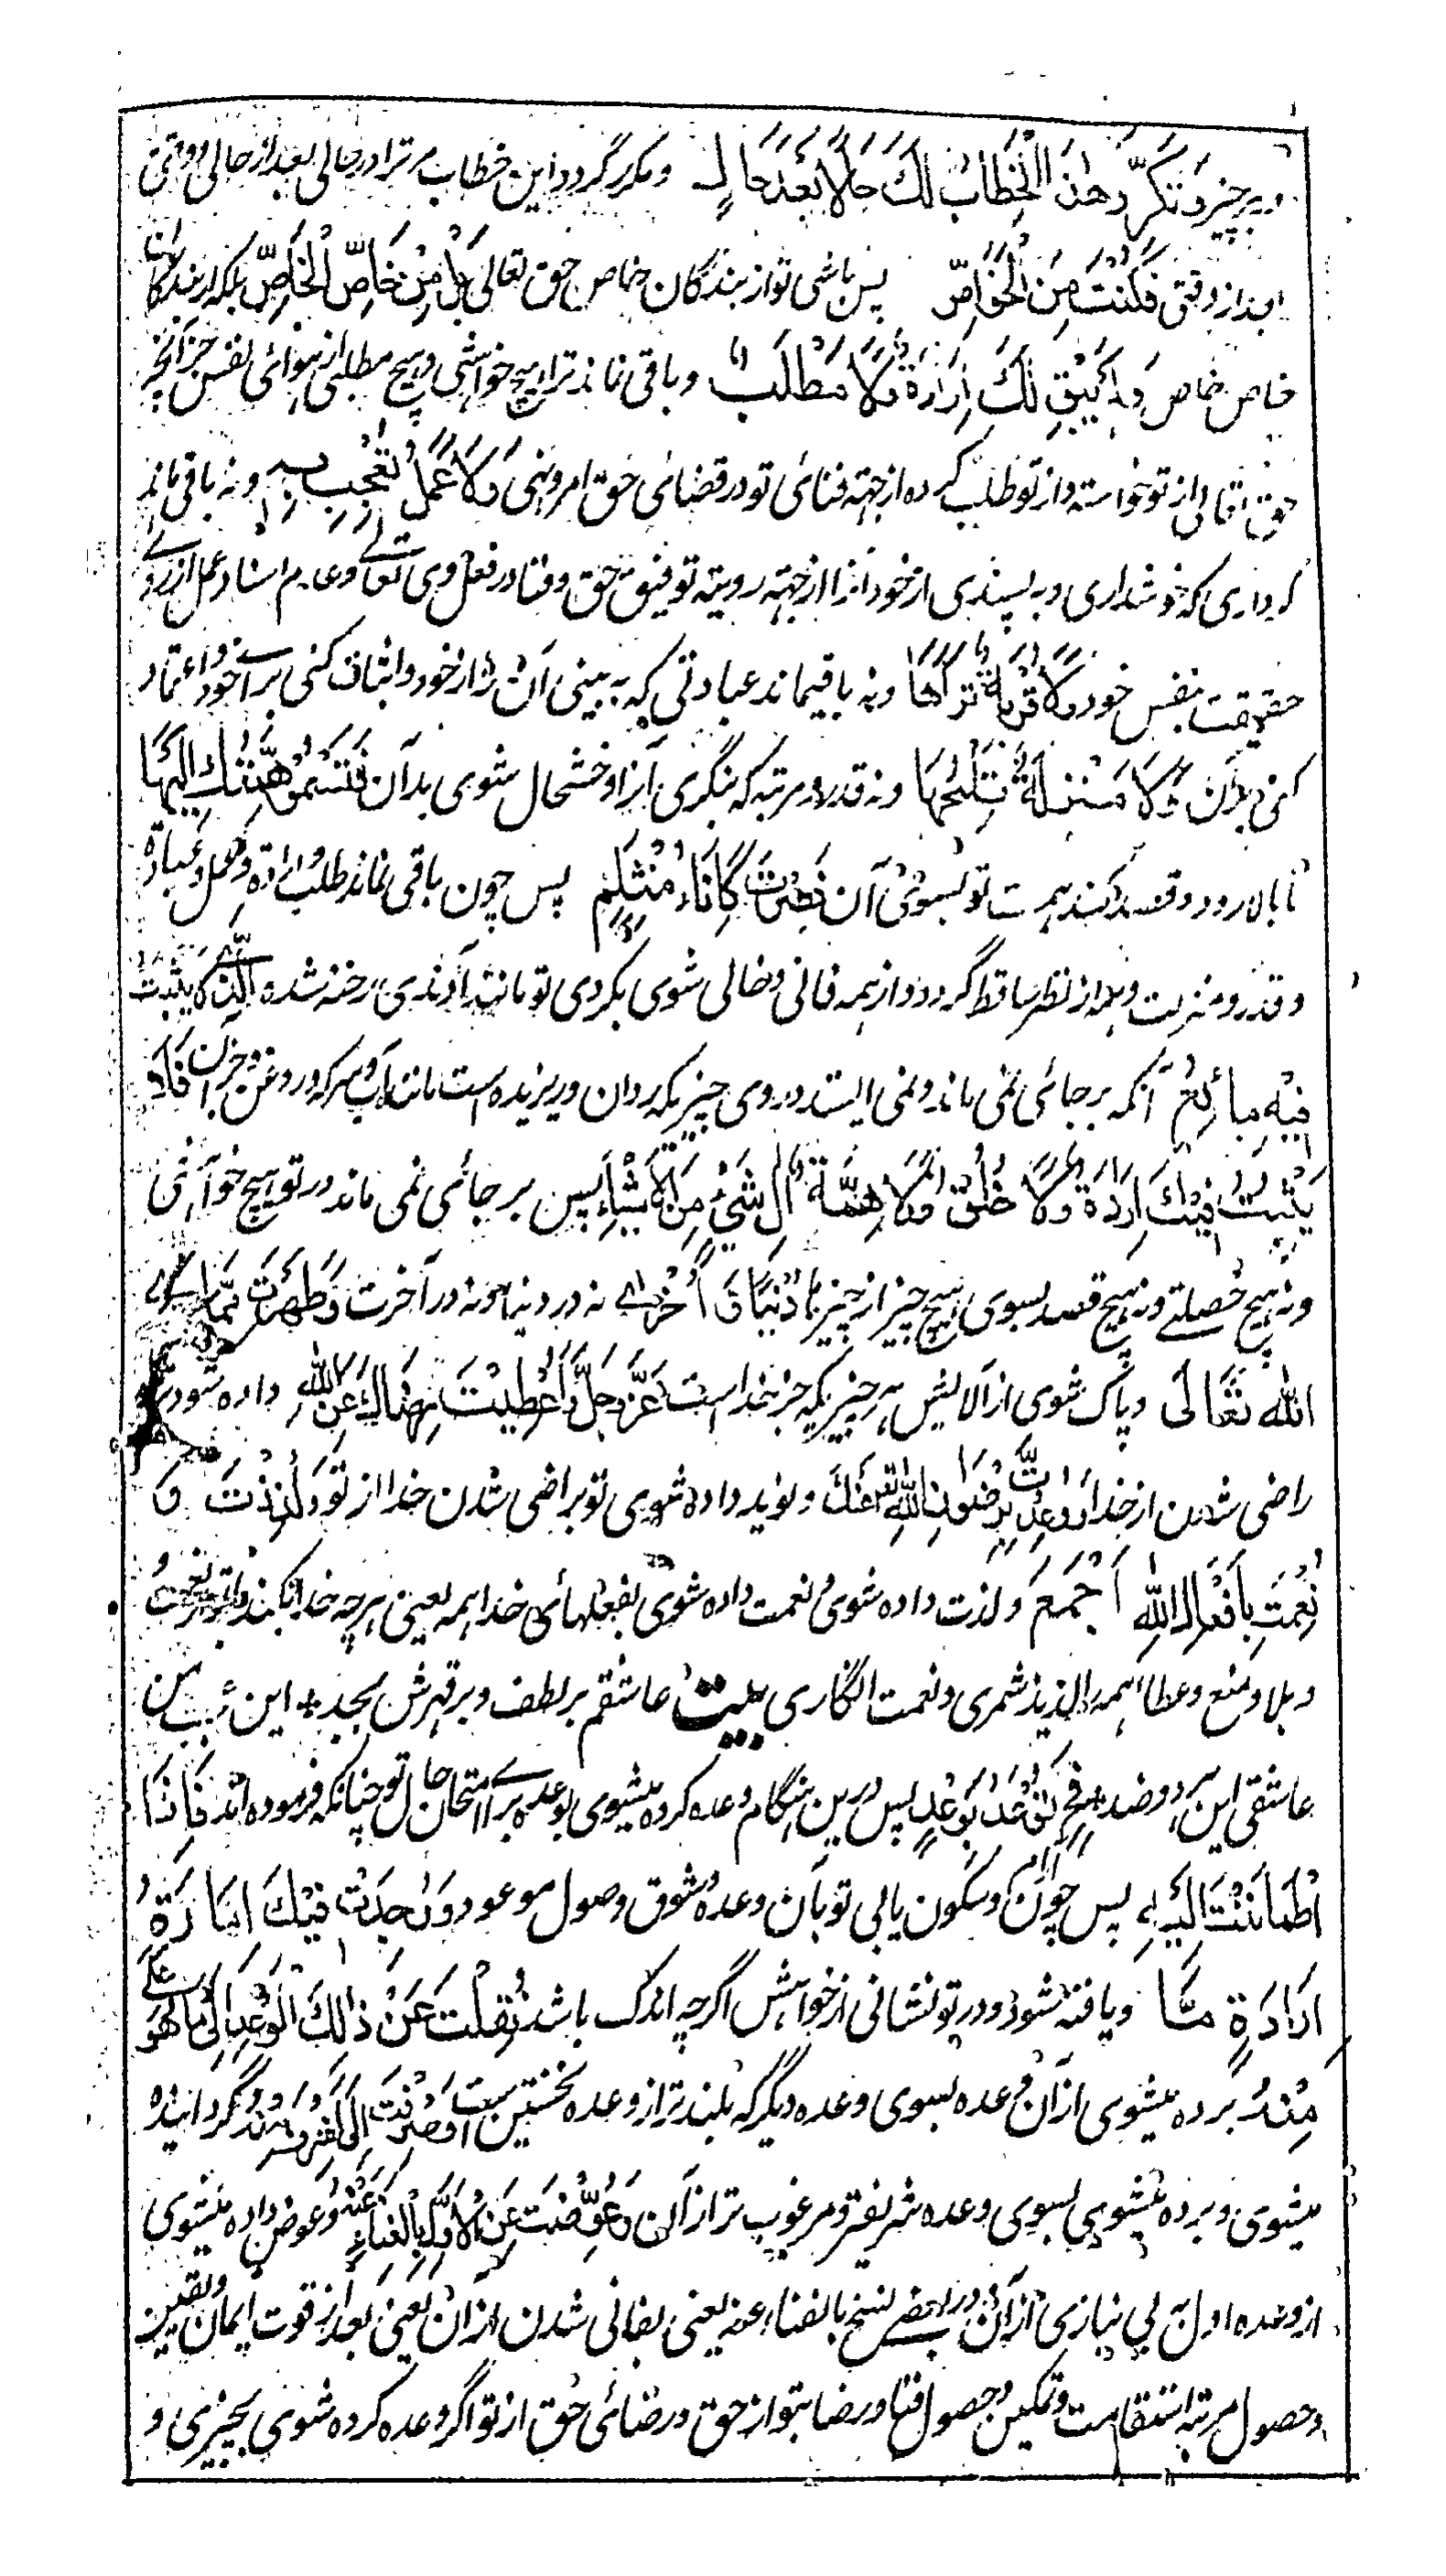 و بر چیز وَتَكَرَّرَ هٰذَا الْخِطَابُ لَكَ حَالًا بَعْدَ حَالٍ و مکرر گردد این خطاب مر ترا در حالی بعد از حالی و وقتی
بعد از وقتی فَكُنْتَ مِنَ الْخَوَاصِّ پس باشی تو از بندگان خاص حق تعالی بَلْ مِنْ خَاصِّ الْخَاصِّ بلکه از بندگان
خاص خاص وَلَمْ يَبْقَ لَكَ إِرَادَةٌ وَلَا مَطْلَبٌ و باقی نماند ترا هیچ خواهشی و هیچ مطلبی از هوائی نفس جز آنچه
حق تعالی از تو خواسته و از تو طلب کرده از جهته فنائی تو در قضائی حق امر و نهی وَلَا عَمَلٌ تُعْجَبُ بِهِ و نه باقی ماند
کرداری که خوشداری و به پسندی از خود آنرا از جهته رویته توفیق حق و فنا در فعل وی تعالے و عدم اسناد عمل از روے
حقیقت بنفس خود وَلَا قُرْبَةٌ تَرَاهَا و نه باقیماند عبادتی که به بینی آن را از خود و اثبات کنی براے خود و اعتماد
کنی بدان وَلَا مَنْزِلَةٌ تَلْمَحُهَا و نه قدر و مرتبه که بنگری آنرا و خشحال شوی بدان فَتَسْمُوَ هِمَّتُكَ إِلَيْهَا
تا بالا رود و قصد کند همت تو بسوئی آن فَصِرْتَ كَإِنَاءٍ مُنْثَلِمٍ پس چون باقی نماند طلب و اراده و عمل و عبادة
و قدر و منزلت و همه از نظر ساقط گردد و از همه فانی و خالی شوی بگردی تو مانند آوندی رخنه شده الَّذِي لَا يَثْبُتُ
فِيهِ مَائِعٌ آنکه بر جائی نمی ماند و نمی ایستد در وی چیزیکه روان و ریزنده است مانند آب و سرکه و روغن و جز آن فَلَا
يَثْبُتُ فِيكَ إِرَادَةٌ وَلَا خُلُقٌ وَلَا هِمَّةٌ إِلَى شَيْءٍ مِنَ الْأَشْيَاءِ پس بر جائی نمی ماند در تو هیچ خواهشی
و نه هیچ خصلتے و نه هیچ قصد بسوی هیچ چیز از چیزها دُنْيَا وَأُخْرٰى نه در دنیا و نه در آخرت وَطُهِّرْتَ مِمَّا سِوَى
اللهِ تَعَالَى و پاک شوی از آلایش هر چیزیکه جز خداست عَزَّ وَجَلَّ وَأُعْطِيتَ رِضَاكَ عَنِ اللهِ و داده شود ترا
راضی شدن از خدا وَوُعِدْتَ بِرِضْوَانِ اللهِ عَنْكَ و نوید داده شوی تو براضی شدن خدا از تو وَلُذِّذْتَ وَ
نُعِّمْتَ بِأَفْعَالِ اللهِ أَجْمَعَ و لذت داده شوی و نعمت داده شوی بفعلهائی خدا همه یعنی هر چه خدا بکند با تو از نعمت
و بلا و منع و عطا همه را لذیذ شمری و نعمت انگاری بیت عاشقم بر لطف و بر قهرش بجد * این عجب من
عاشق این هر دو ضد * فَحِينَئِذٍ تُوعَدُ بِوَعْدٍ پس درین هنگام وعده کرده میشوی بوعده براے امتحان حال تو چنانکه فرموده اند فَإِذَا
اطْمَأْنَنْتَ إِلَيْهِ پس چون آرام و سکون یابی تو بآن وعده و شوق وصول موعود وَوُجِدَتْ فِيكَ أَمَارَةُ
إِرَادَةٍ مَّا و یافته شود در تو نشانی از خواهش اگرچه اندک باشد نُقِلْتَ عَنْ ذٰلِكَ الْوَعْدِ إِلٰى مَا هُوَ أَعْلٰى
مِنْهُ برده میشوی از آن وعده بسوی وعده دیگر که بلند تر از وعده نخستین است وَصُرِفْتَ إِلٰى أَشْرَفَ مِنْهُ و گردانیده
میشوی و برده میشوی بسوی وعده شریفتر و مرغوب تر از آن وَعُوِّضْتَ عَنِ الْأَوَّلِ بِالْغِنَاءِ عَنْهُ و عوض داده میشوی
از وعده اول به بی نیازی از آن و در بعضے نسخ بالفناء عنه یعنی بفانی شدن از آن یعنی بعد از قوت ایمان و یقین
و حصول مرتبه استقامت و تمکین و حصول فنا و رضا بتو از حق و رضائی حق از تو اگر وعده کرده شوی بچیزی و